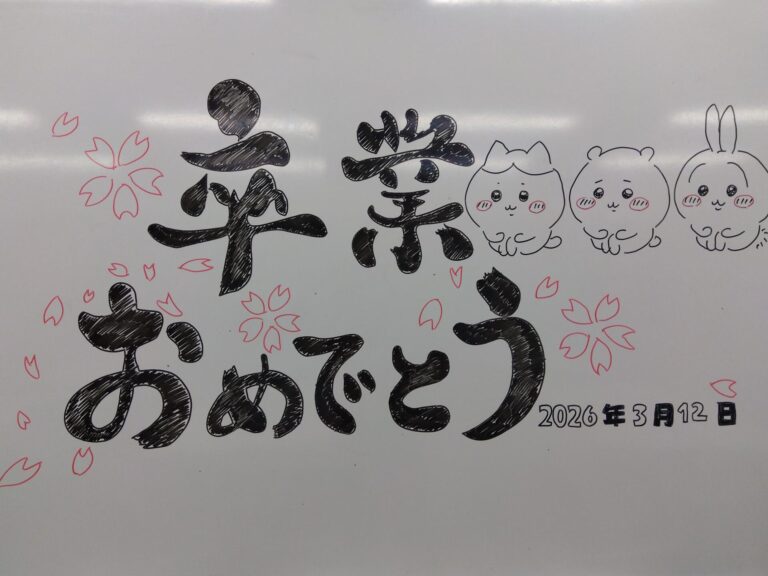 卒業
おめでとう
2026年3月12日